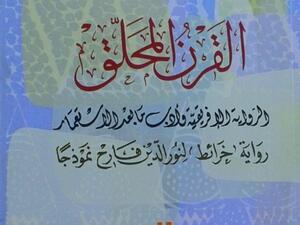 القرن المحلق
الرواية الإفريقية وأدب ما بعد الاستعمار
رواية خرائط لنور الدين فارح نموذجًا